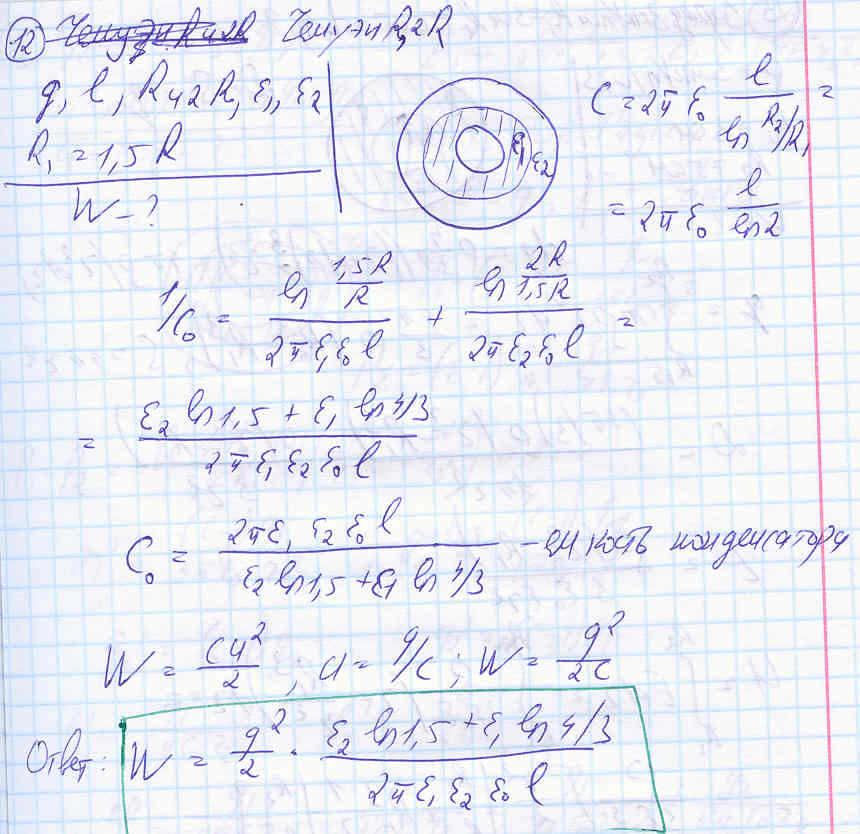 12 R, 2R
q, l, R и 2R, ε₁, ε₂
R₁ = 1,5R
W - ?
ε₁ ε₂
C = 2π ε₀ l / ln R₂/R₁ =
= 2π ε₀ l / ln 2
1/C₀ = ln (1,5R / R) / 2π ε₁ ε₀ l + ln (2R / 1,5R) / 2π ε₂ ε₀ l =
= ε₂ ln 1,5 + ε₁ ln 4/3 / 2π ε₁ ε₂ ε₀ l
C₀ = 2π ε₁ ε₂ ε₀ l / ε₂ ln 1,5 + ε₁ ln 4/3 - емкость конденсатора
W = CU² / 2 ; U = q/C ; W = q² / 2C
Ответ: W = q² / 2 · ε₂ ln 1,5 + ε₁ ln 4/3 / 2π ε₁ ε₂ ε₀ l